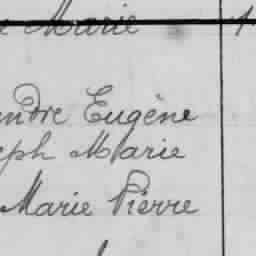 Marie
andre Eugène
eph Marie
Marie Pierre